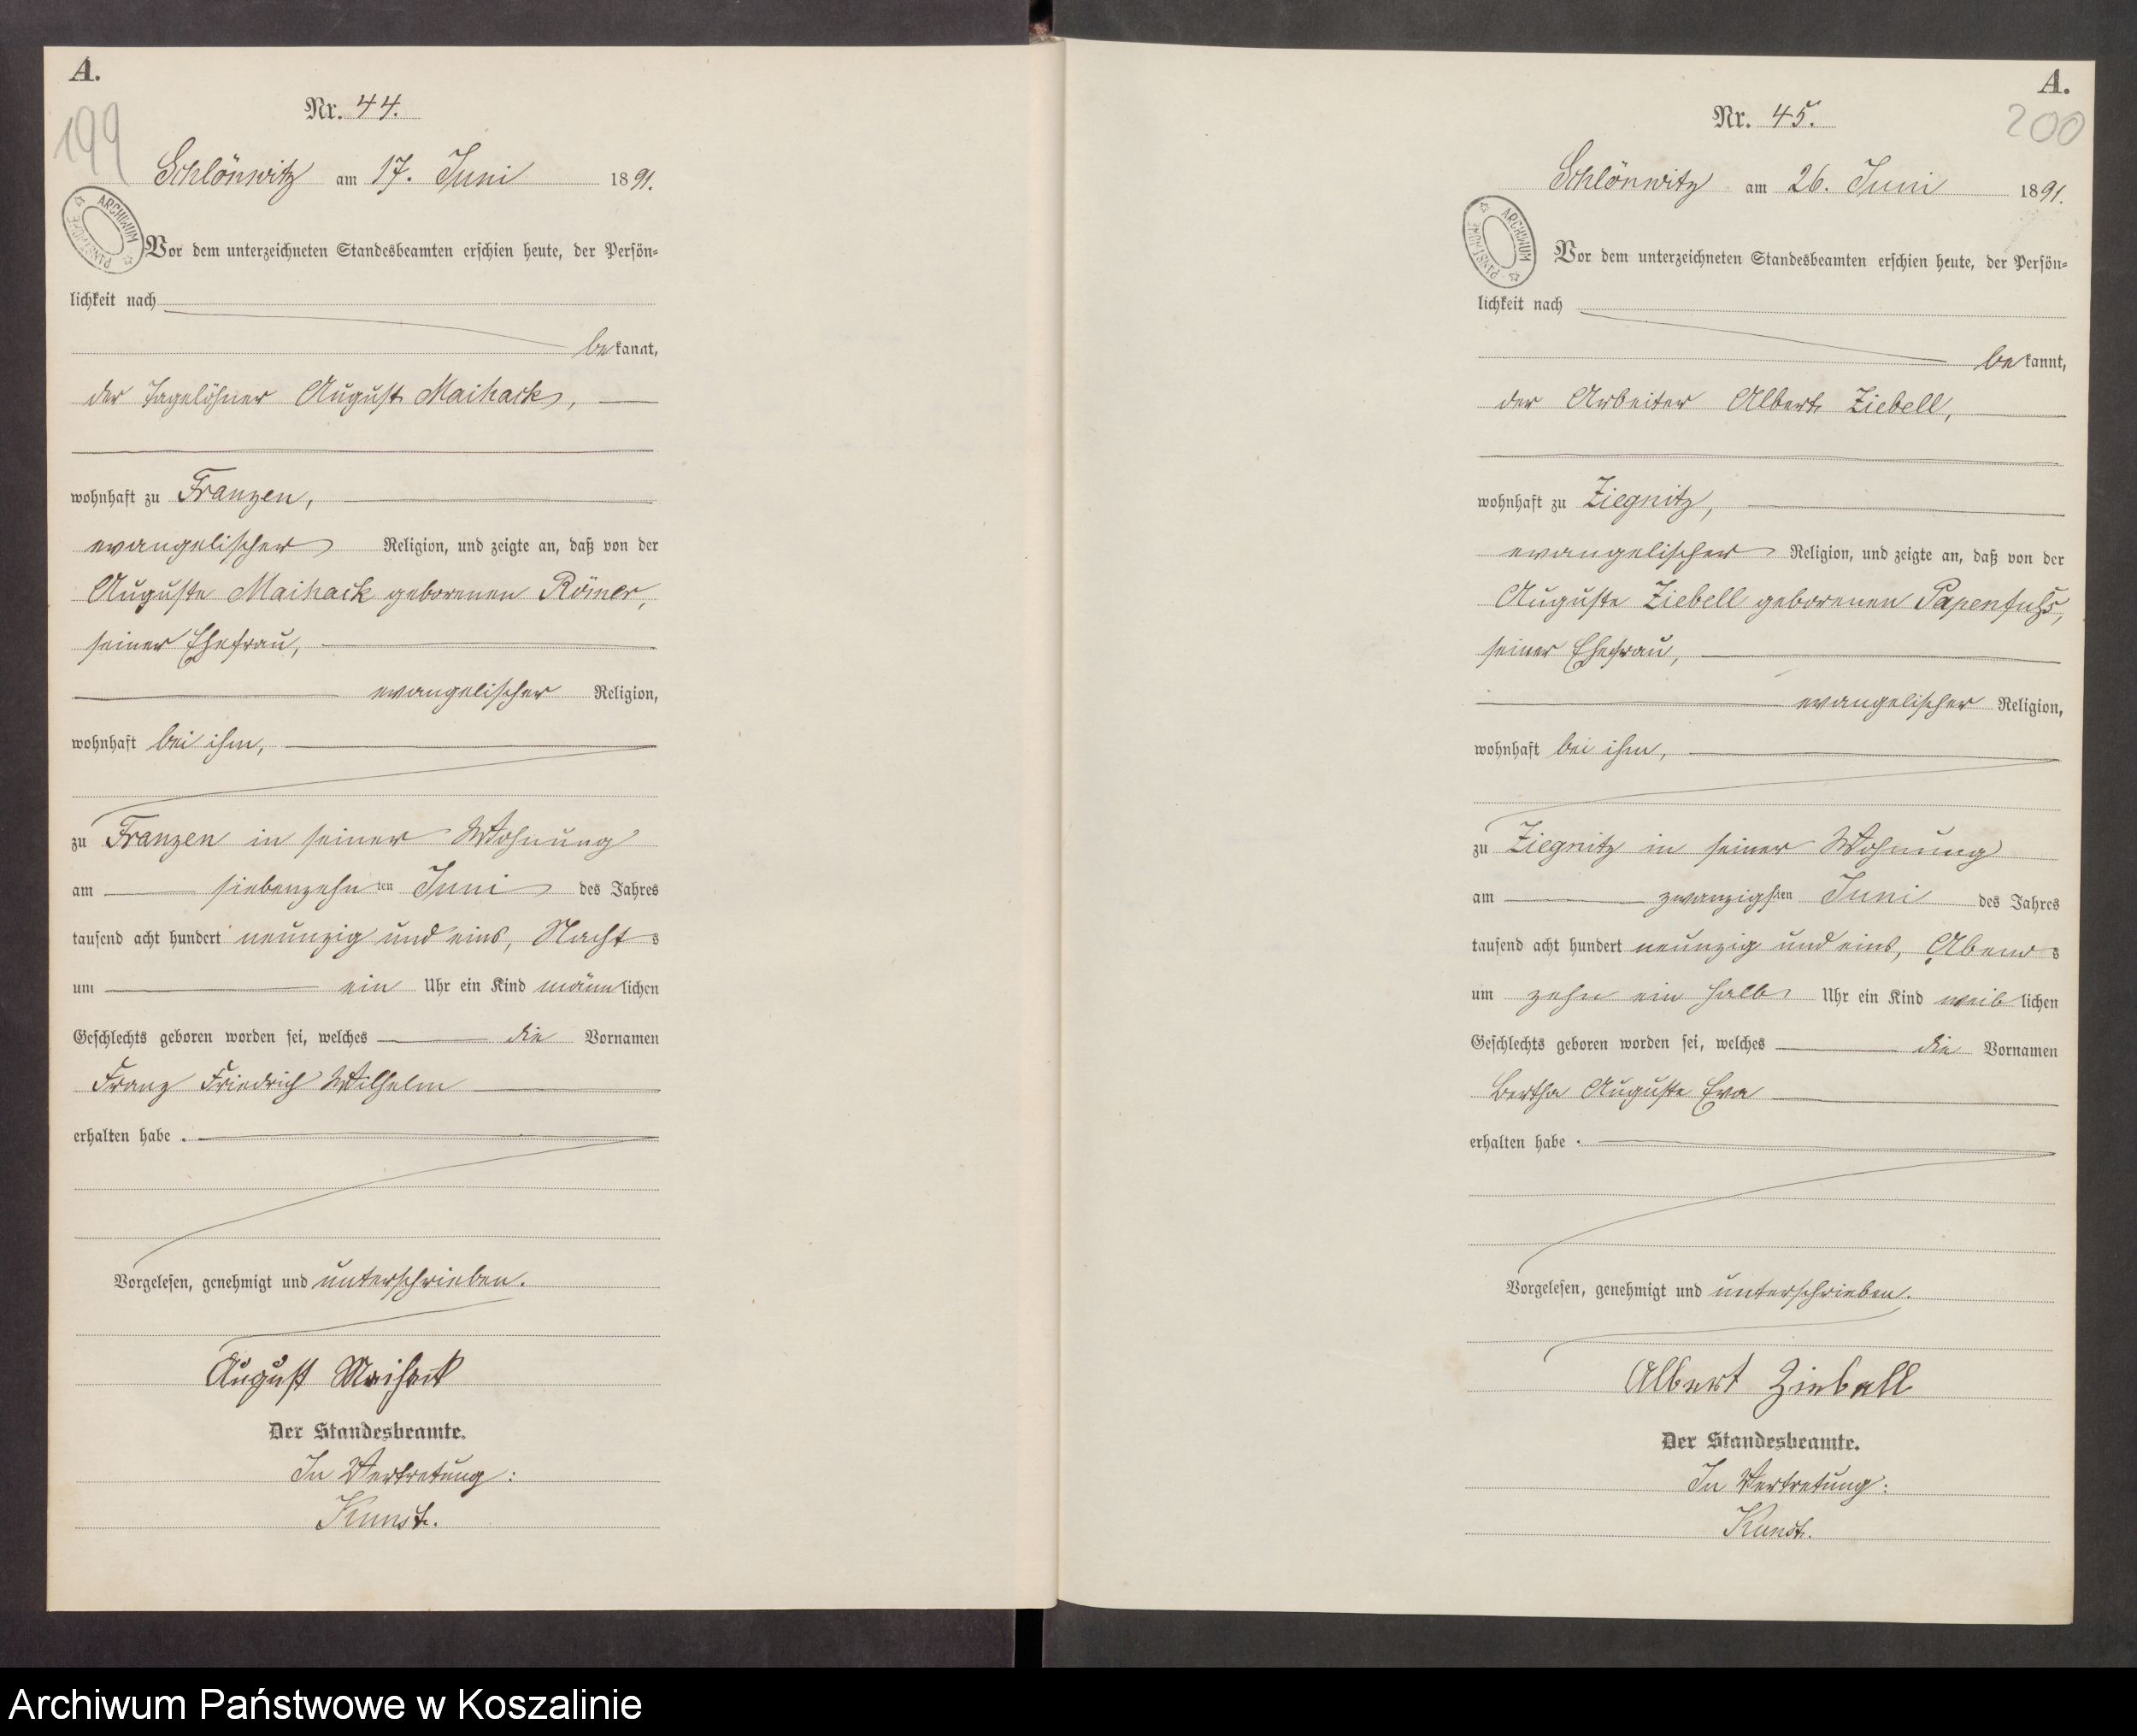 A.
199
Nr. 44.
Schlönwitz am 17. Juni 1891.
ARCHIWUM PAŃSTWOWE
Vor dem unterzeichneten Standesbeamten erschien heute, der Persön-
lichkeit nach
bekannt,
der Tagelöhner August Maihack,
wohnhaft zu Franzen,
evangelischer Religion, und zeigte an, daß von der
Auguste Maihack geborenen Römer,
seiner Ehefrau,
evangelischer Religion,
wohnhaft bei ihm,
zu Franzen in seiner Wohnung
am siebenzehnten Juni des Jahres
tausend acht hundert neunzig und eins, Nachts
um ein Uhr ein Kind männlichen
Geschlechts geboren worden sei, welches die Vornamen
Franz Friedrich Wilhelm
erhalten habe.
Vorgelesen, genehmigt und unterschrieben.
August Maihack
Der Standesbeamte.
In Vertretung:
Kunst.
A.
200
Nr. 45.
Schlönwitz am 26. Juni 1891.
ARCHIWUM PAŃSTWOWE
Vor dem unterzeichneten Standesbeamten erschien heute, der Persön-
lichkeit nach
bekannt,
der Arbeiter Albert Ziebell,
wohnhaft zu Ziegnitz,
evangelischer Religion, und zeigte an, daß von der
Auguste Ziebell geborenen Papenfuß,
seiner Ehefrau,
evangelischer Religion,
wohnhaft bei ihm,
zu Ziegnitz in seiner Wohnung
am zwanzigsten Juni des Jahres
tausend acht hundert neunzig und eins, Abends
um zehn ein halb Uhr ein Kind weiblichen
Geschlechts geboren worden sei, welches die Vornamen
Bertha Auguste Eva
erhalten habe.
Vorgelesen, genehmigt und unterschrieben.
Albert Ziebell
Der Standesbeamte.
In Vertretung:
Kunst.
Archiwum Państwowe w Koszalinie